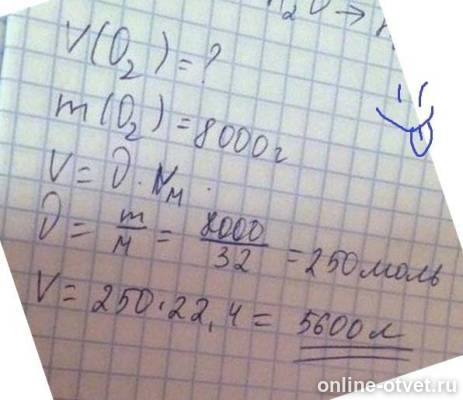 V(O₂)=?
m(O₂)=8000г
V=ν·Vм.
ν=m/м=8000/32=250моль
V=250·22,4=5600л
online-otvet.ru